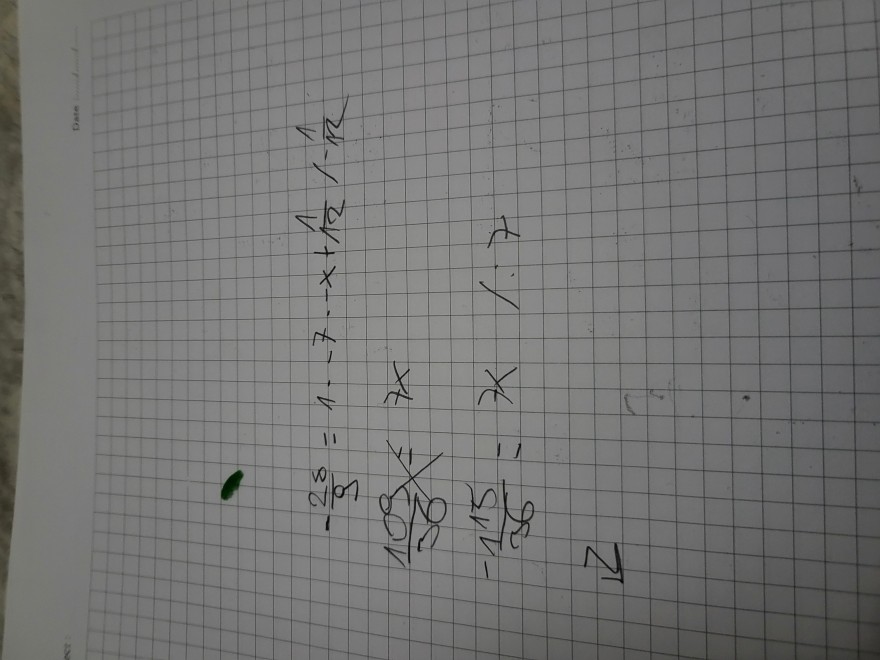 Date
-28/9 = 1 · -7 · -x + 1/12 / - 1/12
109/36 = 7x
-115/36 = 7x / : 7